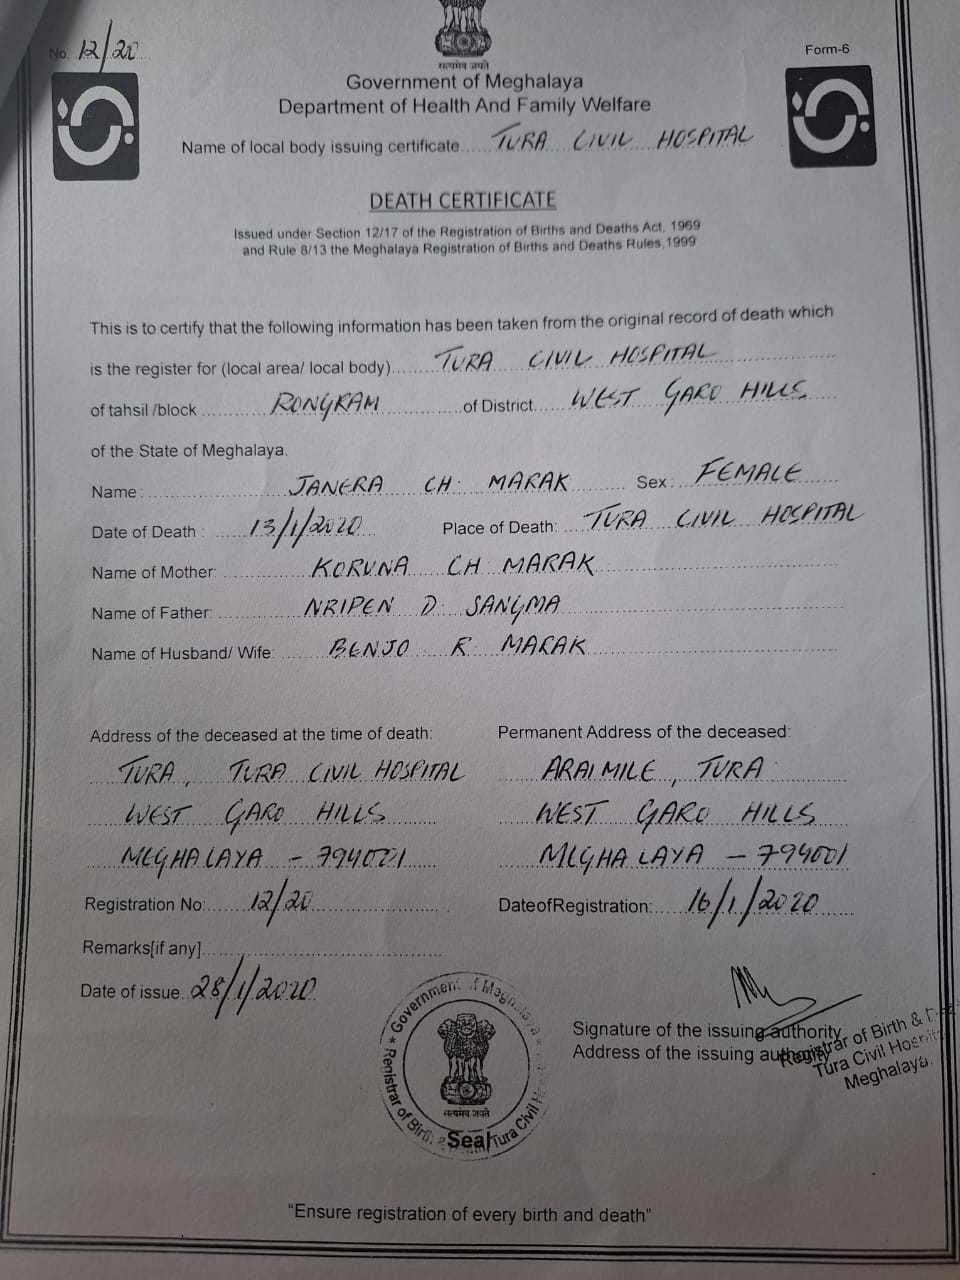 No. 12/20
Form-6
सत्यमेव जयते
Government of Meghalaya
Department of Health And Family Welfare
Name of local body issuing certificate...... TURA CIVIL HOSPITAL
DEATH CERTIFICATE
Issued under Section 12/17 of the Registration of Births and Deaths Act, 1969
and Rule 8/13 the Meghalaya Registration of Births and Deaths Rules,1999
This is to certify that the following information has been taken from the original record of death which
is the register for (local area/ local body)...... TURA CIVIL HOSPITAL
of tahsil /block RONGRAM of District...... WEST GARO HILLS
of the State of Meghalaya.
Name : JANERA CH. MARAK Sex : FEMALE
Date of Death : 13/1/2020 Place of Death: TURA CIVIL HOSPITAL
Name of Mother: KORUNA CH MARAK
Name of Father: NRIPEN D. SANGMA
Name of Husband/ Wife: BENJO R MARAK
Address of the deceased at the time of death:
TURA, TURA CIVIL HOSPITAL
WEST GARO HILLS
MEGHALAYA - 794001
Permanent Address of the deceased:
ARAIMILE, TURA
WEST GARO HILLS
MEGHALAYA - 794001
Registration No: 12/20
DateofRegistration: 16/1/2020
Remarks[if any]
Date of issue 28/1/2020
Government of Megh
Registrar of Birth Tura Civil
सत्यमेव जयते
Seal
Signature of the issuing authority
Address of the issuing authority
Registrar of Birth &
Tura Civil
Meghalaya.
"Ensure registration of every birth and death"